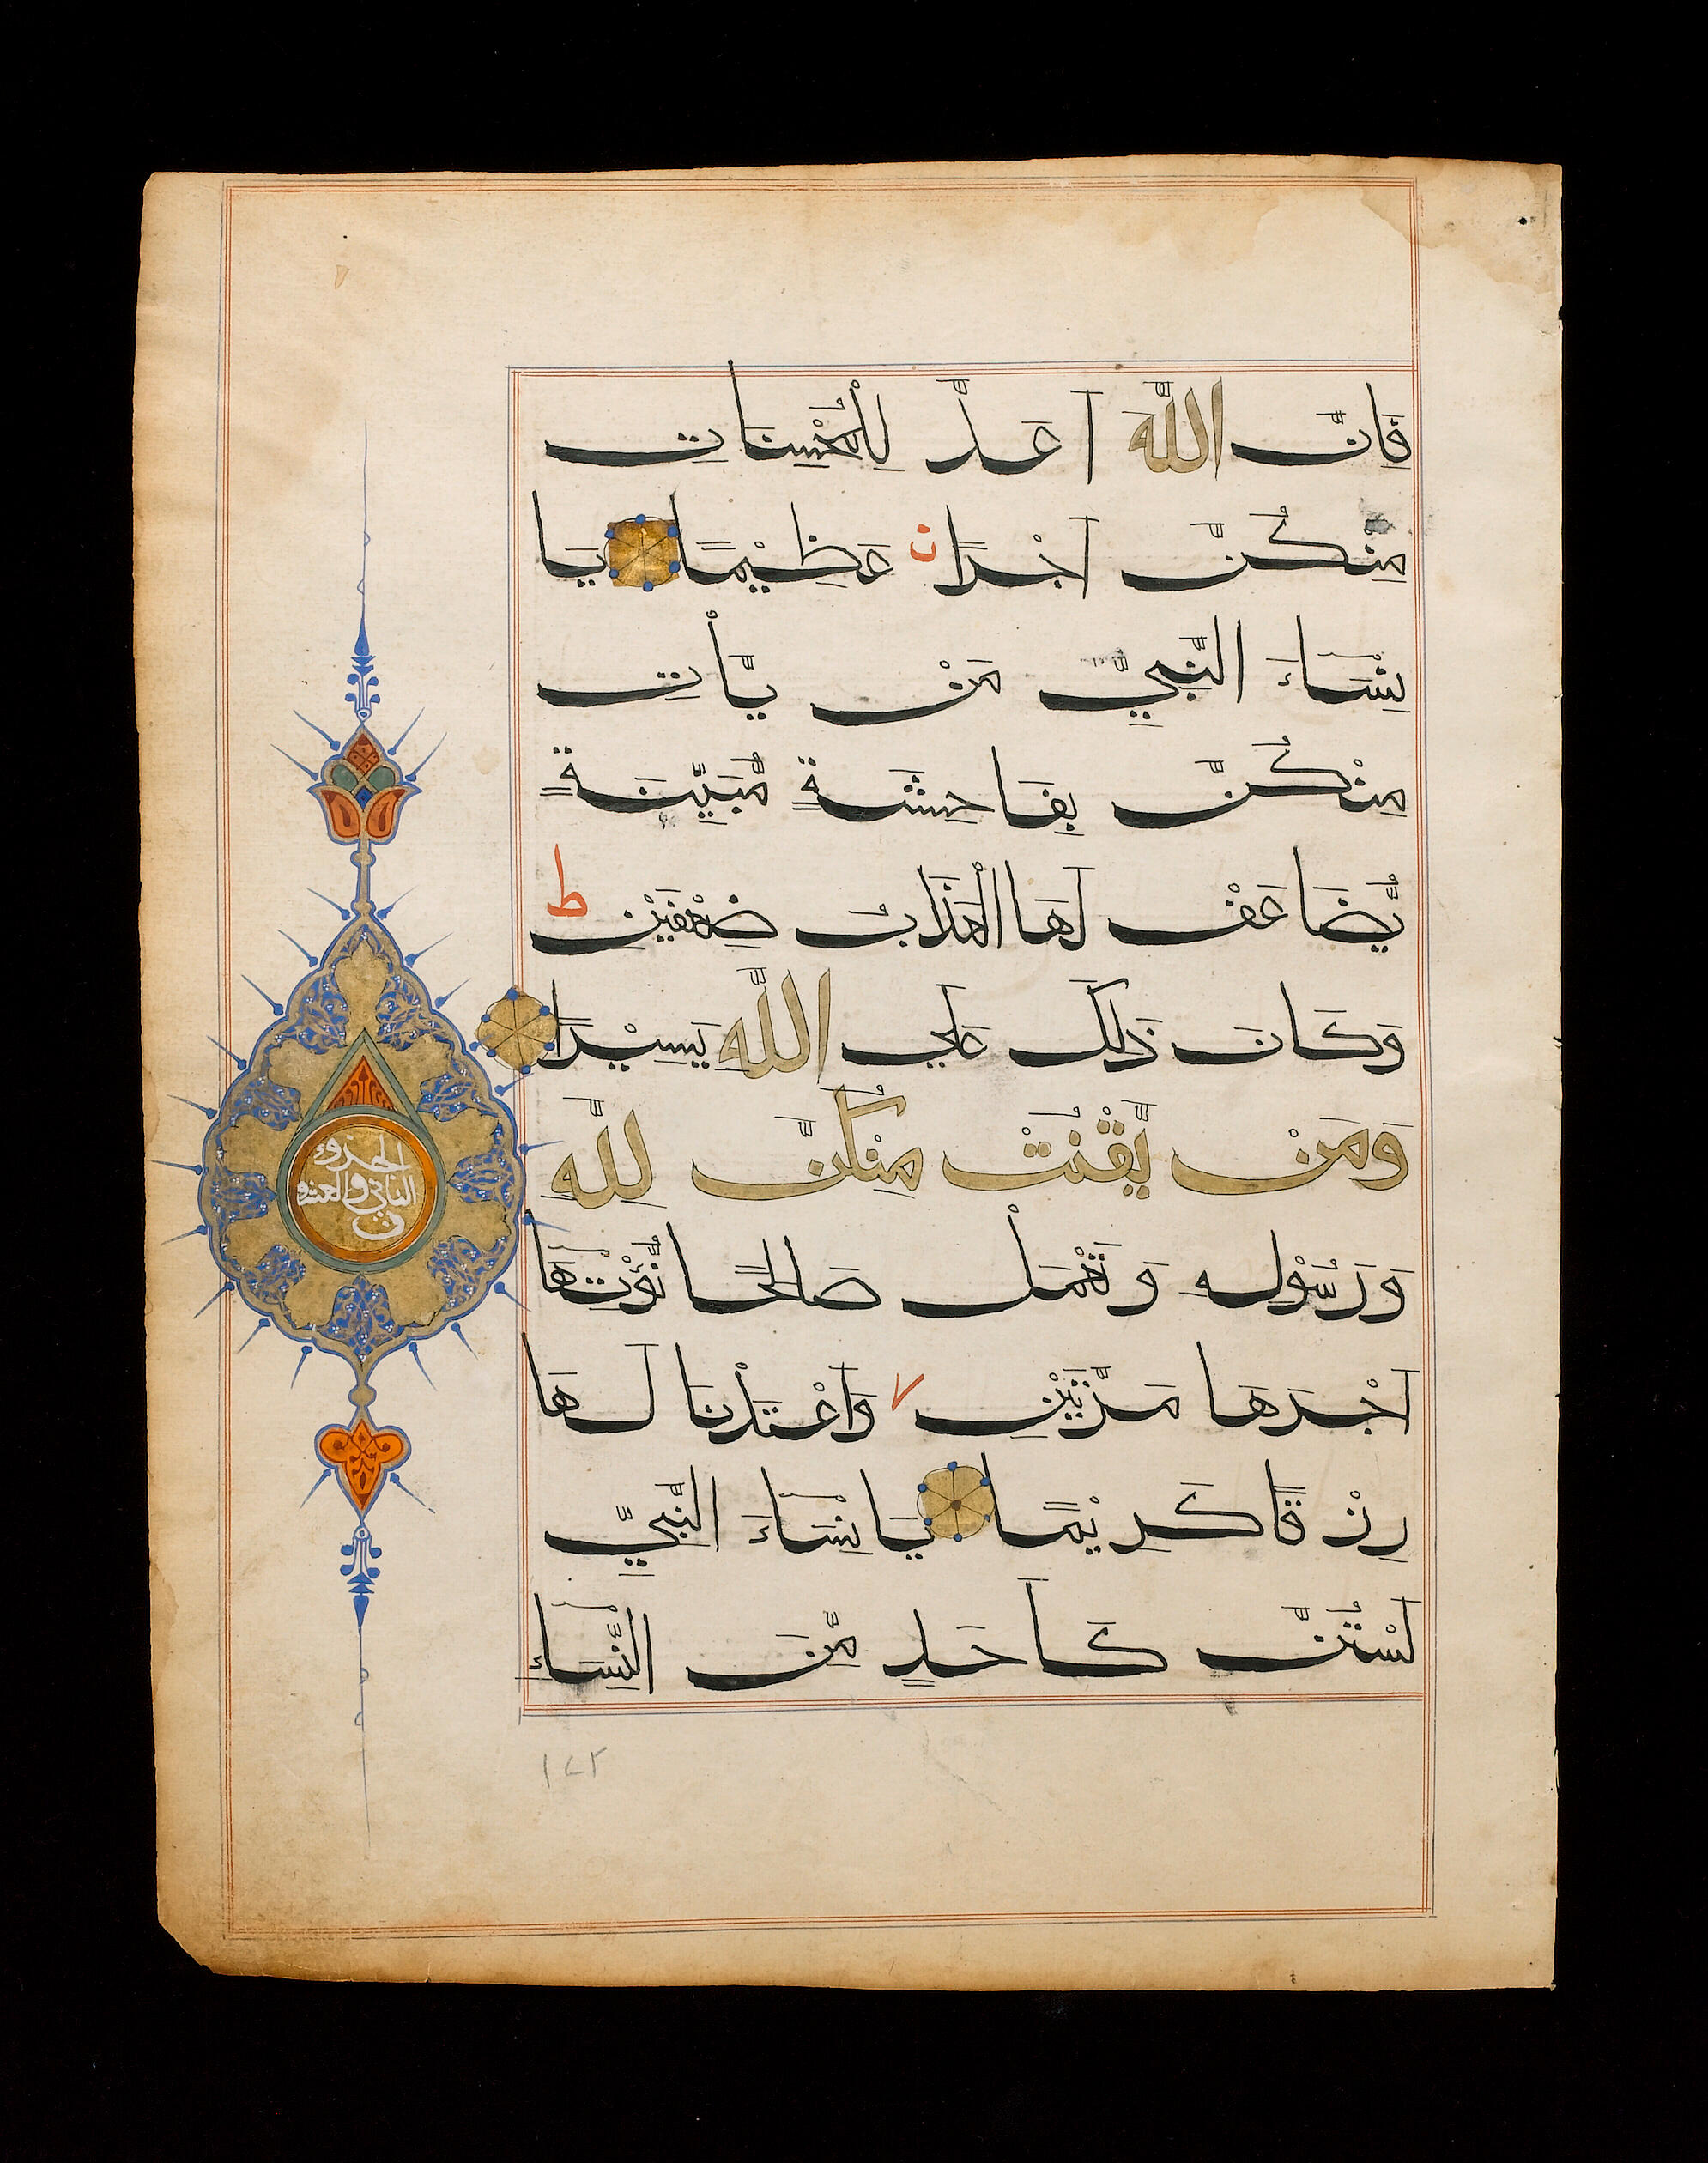 فَاِنَّ اللّٰهَ اَعَدَّ لِلْمُحْسِنَاتِ
مِنْكُنَّ اَجْرًا ن عَظِيْمًا يَا
نِسَاءَ النَّبِيِّ مَنْ يَّأْتِ
مِنْكُنَّ بِفَاحِشَةٍ مُّبَيِّنَةٍ
يُّضَاعَفْ لَهَا الْعَذَابُ ضِعْفَيْنِ ط
وَكَانَ ذَلِكَ عَلَي اللّٰهِ يَسِيْرًا
وَمَنْ يَّقْنُتْ مِنْكُنَّ لِلّٰهِ
وَرَسُوْلِهِ وَتَعْمَلْ صَالِحًا نُّؤْتِهَا
اَجْرَهَا مَرَّتَيْنِ لا وَاَعْتَدْنَا لَهَا
رِزْقًا كَرِيْمًا يَا نِسَاءَ النَّبِيِّ
لَسْتُنَّ كَاَحَدٍ مِّنَ النِّسَاءِ
الجزوء
الثاني والعشرو
ن
١٧٢